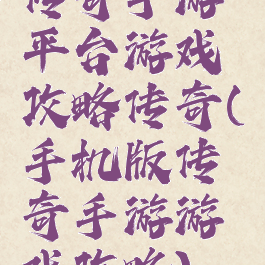 传奇手游
平台游戏
攻略传奇(
手机版传
奇手游游
戏攻略)